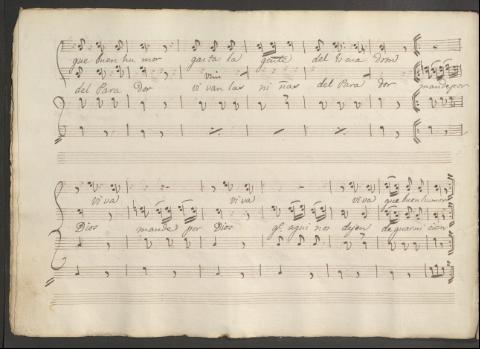 que buen hu mor gasta la gente del
del Para Dor vi van las ni ñas del Para dor mande por
vi va vi va vi va que buen humor
Dios mande por Dios qe. aqui nos dejen de guarni cion